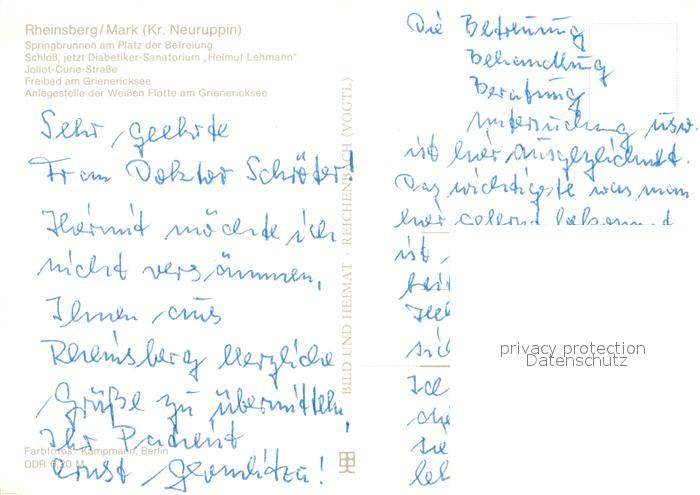 Rheinsberg/Mark (Kr. Neuruppin)
Springbrunnen am Platz der Befreiung
Schloß, jetzt Diabetiker-Sanatorium „Helmut Lehmann"
Joliot-Curie-Straße
Freibad am Grienericksee
Anlegestelle der Weißen Flotte am Grienericksee
Sehr geehrte
Frau Doktor Schröter!
Hiermit möchte ich
nicht versäumen,
Ihnen aus
Rheinsberg herzliche
Grüße zu übermitteln,
Ihr Patient
Ernst
Farbfotos: Kampmann, Berlin
DDR 0,20 M
BILD UND HEIMAT · REICHENBACH (VOGTL)
Die Betreuung
Behandlung
Beratung
Untersuchung usw.
ist hier ausgezeichnet.
Das wichtigste was man
hier gelernt bekommt
ist
Ich
die
sie
privacy protection
Datenschutz